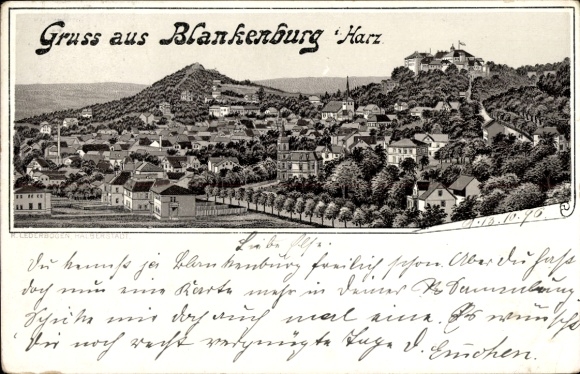 Gruss aus Blankenburg i. Harz.
R. LEDERBOGEN, HALBERSTADT
d. 10.10.96.
Liebe Else.
Du kennst ja Blankenburg freilich schon. Aber Du hast
doch nun eine Karte mehr in Deiner Sammlung
Schicke mir doch auch mal eine. Es wünscht
Dir noch recht vergnügte Tage D.